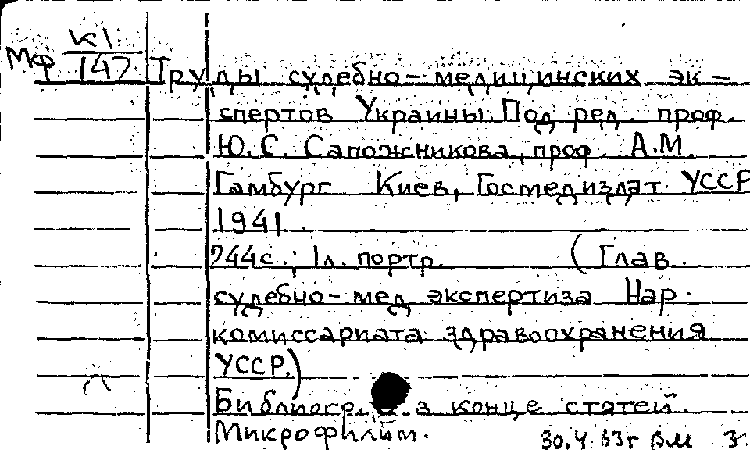 Мф К1
147 Труды судебно-медицинских эк-
спертов Украины Под ред. проф.
Ю.С. Сапожникова, проф А.М.
Гамбург Киев, Госмедиздат УССР
1941.
244с.; 1л. портр. (Глав.
судебно-мед экспертиза Нар.
комиссариата здравоохранения
УССР.)
Библиогр. в конце статей.
Микрофильм. 30.4.63г